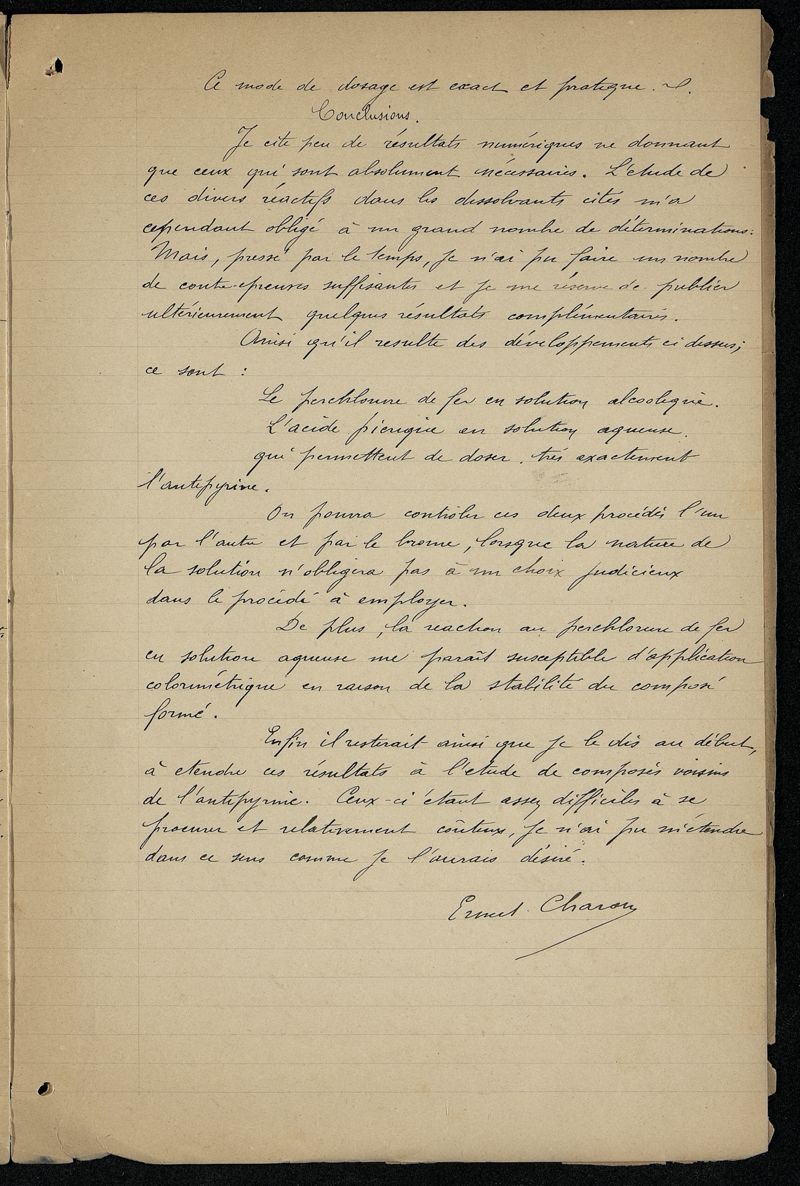 Ce mode de dosage est exact et pratique.
Conclusions.
Je cite peu de résultats numériques ne donnant
que ceux qui sont absolument nécessaires. L'étude de
ces divers réactifs dans les dissolvants cités m'a
cependant obligé à un grand nombre de déterminations.
Mais, pressé par le temps, je n'ai pu faire un nombre
de contre-épreuves suffisantes et je me réserve de publier
ultérieurement quelques résultats complémentaires.
Ainsi qu'il resulte des développements ci dessus;
ce sont :
Le perchlorure de fer en solution alcoolique.
L'acide picrique en solution aqueuse.
qui permettent de doser très exactement
l'antipyrine.
On pourra contrôler ces deux procédés l'un
par l'autre et par le brome, lorsque la nature de
la solution n'obligera pas à un choix judicieux
dans le procédé à employer.
De plus, la reaction au perchlorure de fer
en solution aqueuse me paraît susceptible d'application
colorimétrique en raison de la stabilité du composé
formé.
Enfin il resterait ainsi que je le dis au début,
à etendre ces résultats à l'étude de composés voisins
de l'antipyrine. Ceux-ci étant assez difficiles à se
procurer et relativement coûteux, je n'ai pu m'étendre
dans ce sens comme je l'aurais désiré.
Ernest Charon